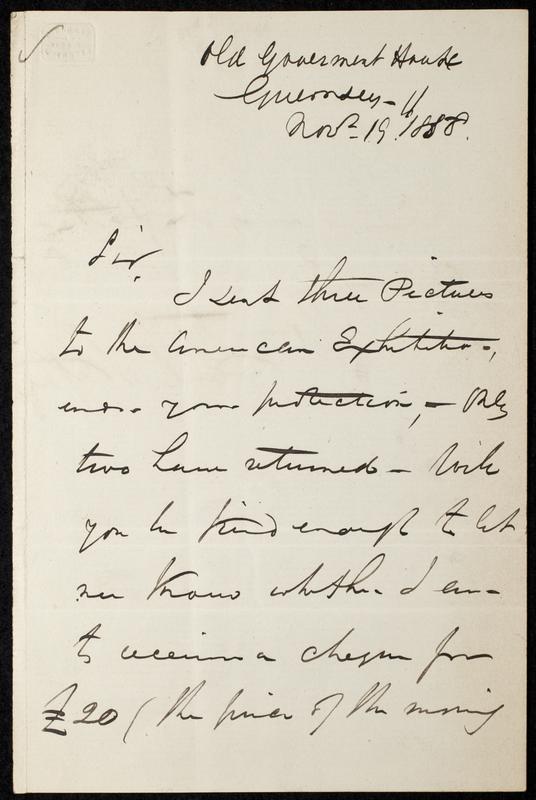 Old Goverment House
Guernsey -
Novr 19. 1888.
Sir,
I sent three Pictures
to the American Exhibition,
under your protection, - Only
two have returned - Will
you be kind enough to let
me know whether I am
to receive a cheque for
£20 (the price of the missing